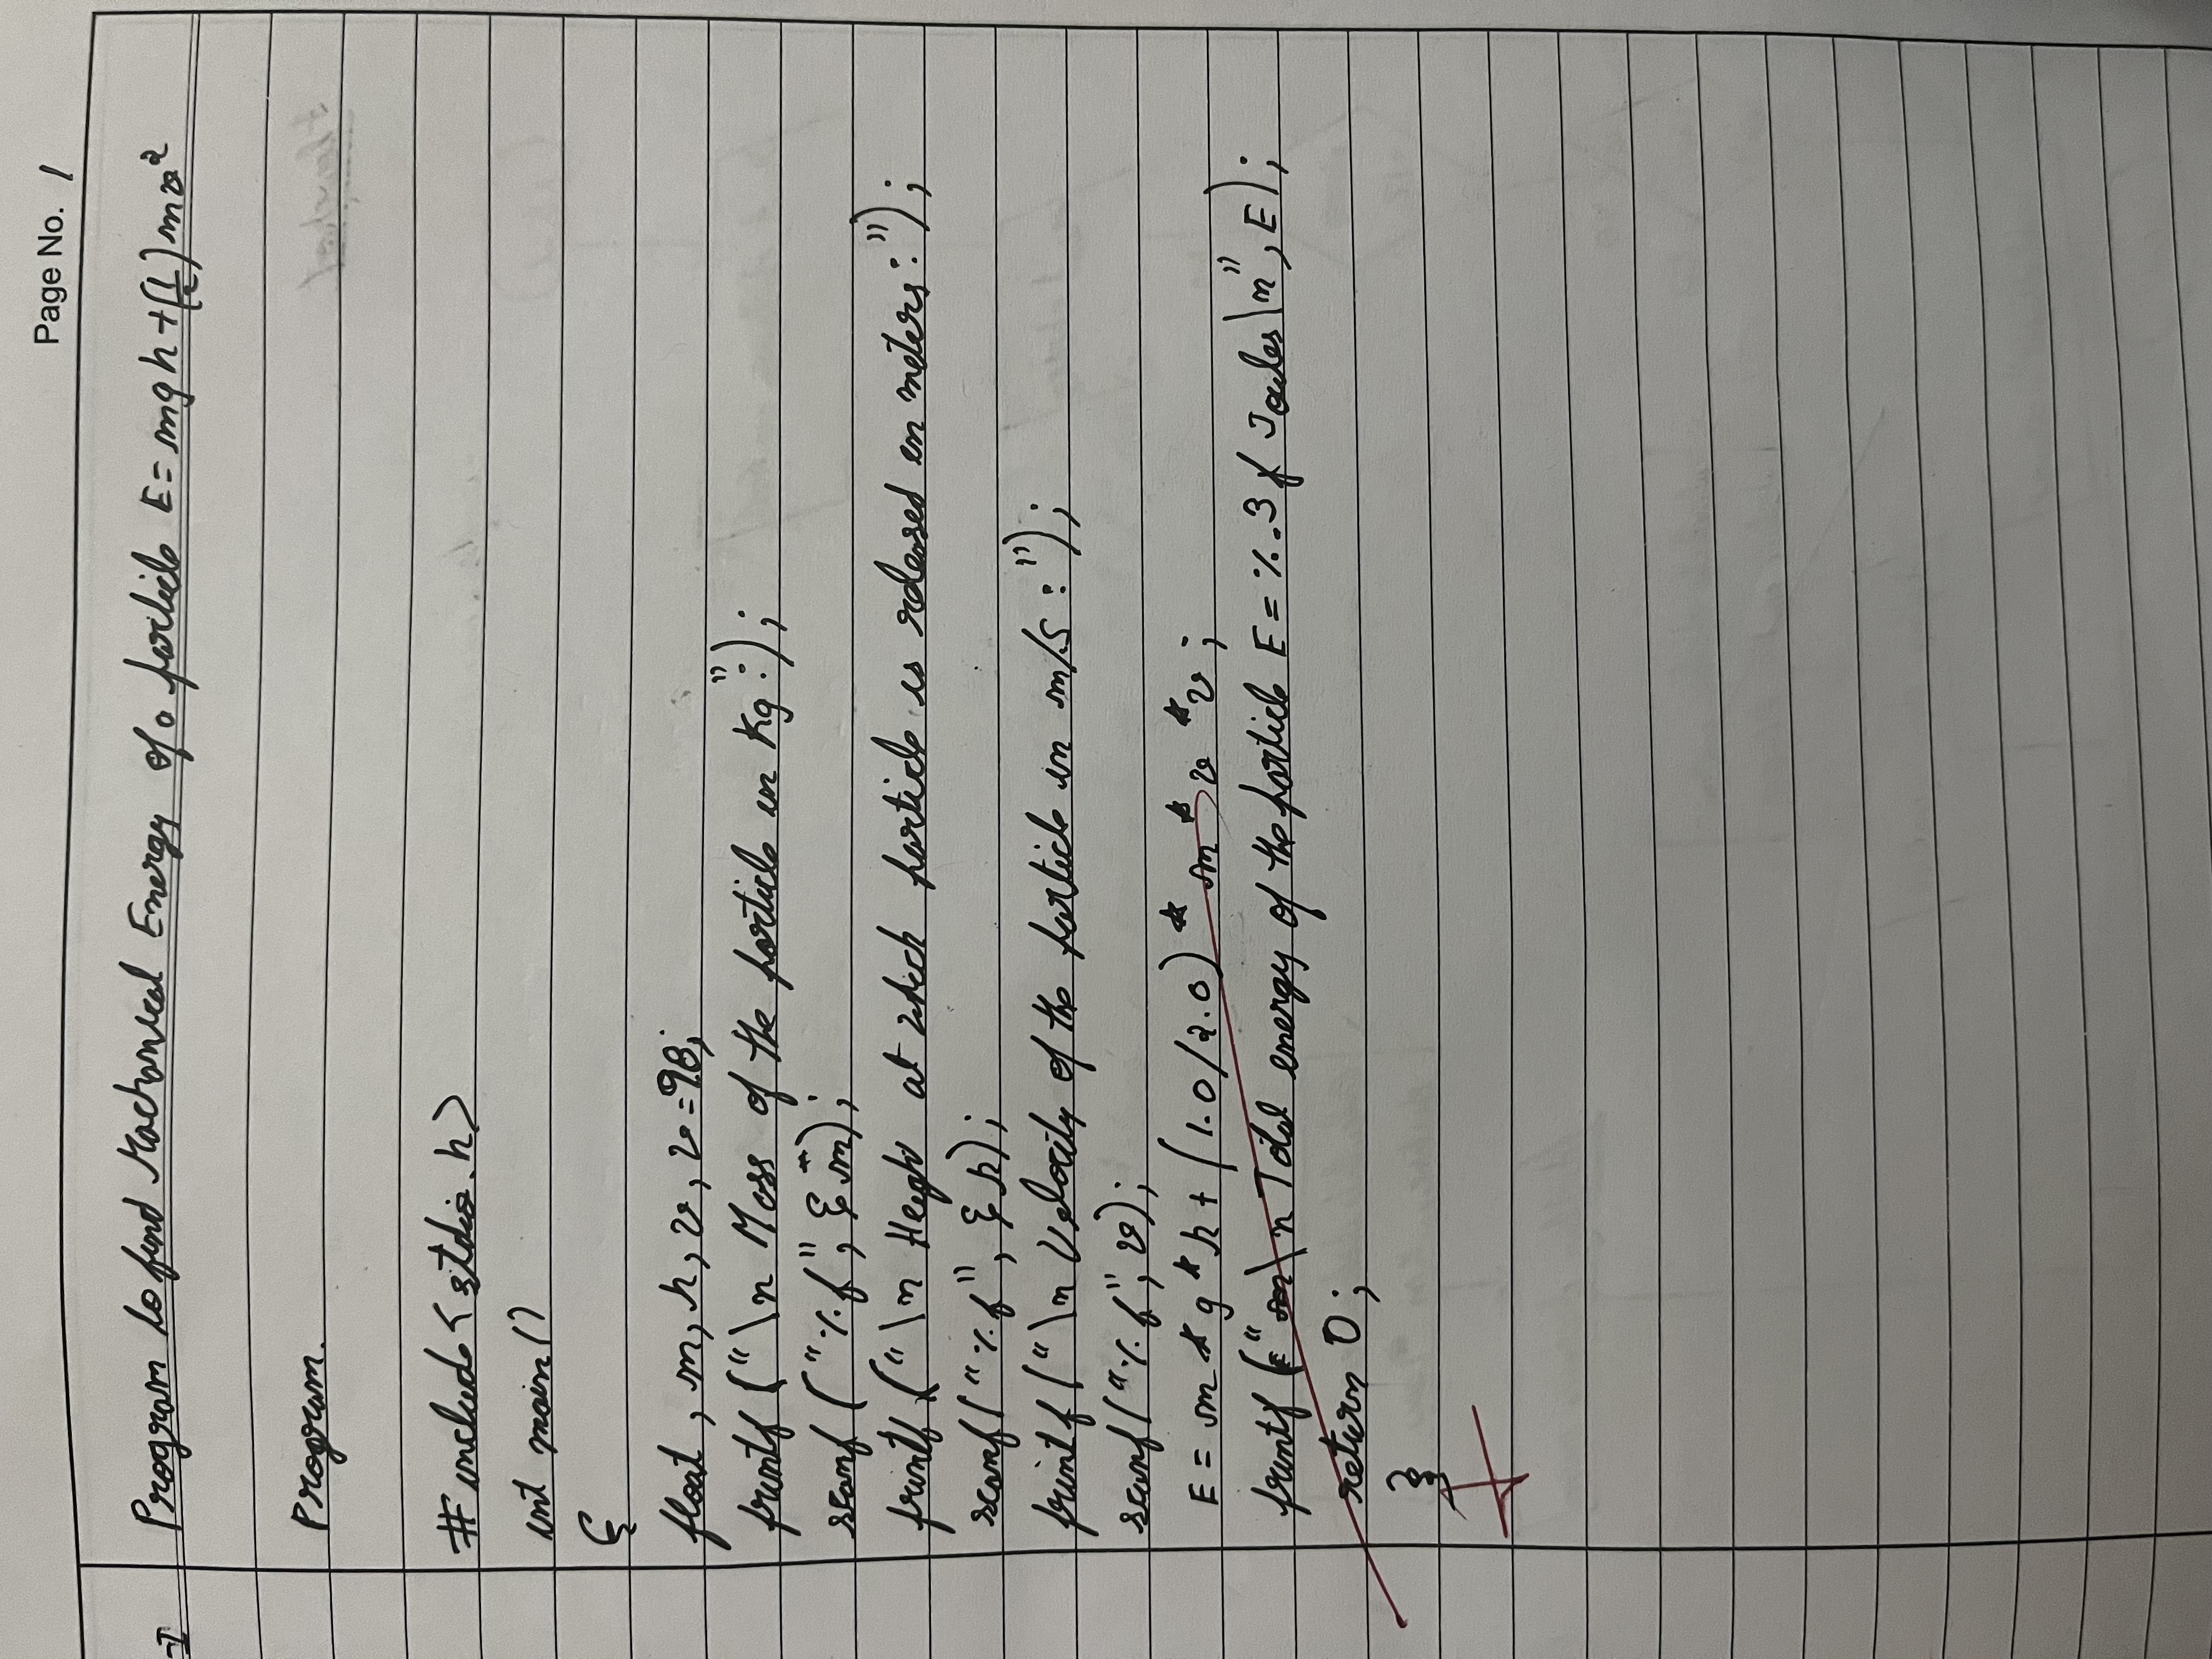 Page No. 1
-I
Program to find Mechanical Energy of a particle E = mgh + (1/2) mv²
Program.
#include <stdio.h>
int main()
{
float , m, h, v, v = 9.8;
printf ("\n Mass of the particle in Kg":);
scanf ("%f", & m);
printf ("\n Height at which particle is released in meters:");
scanf ("%f", & h);
printf ("\n Velocity of the particle in m/s :");
scanf ("%f", v);
E = m * g * h + (1.0/2.0) * m * v * v ;
printf ("\n Total energy of the particle E = %.3f Joules\n", E);
return 0;
}